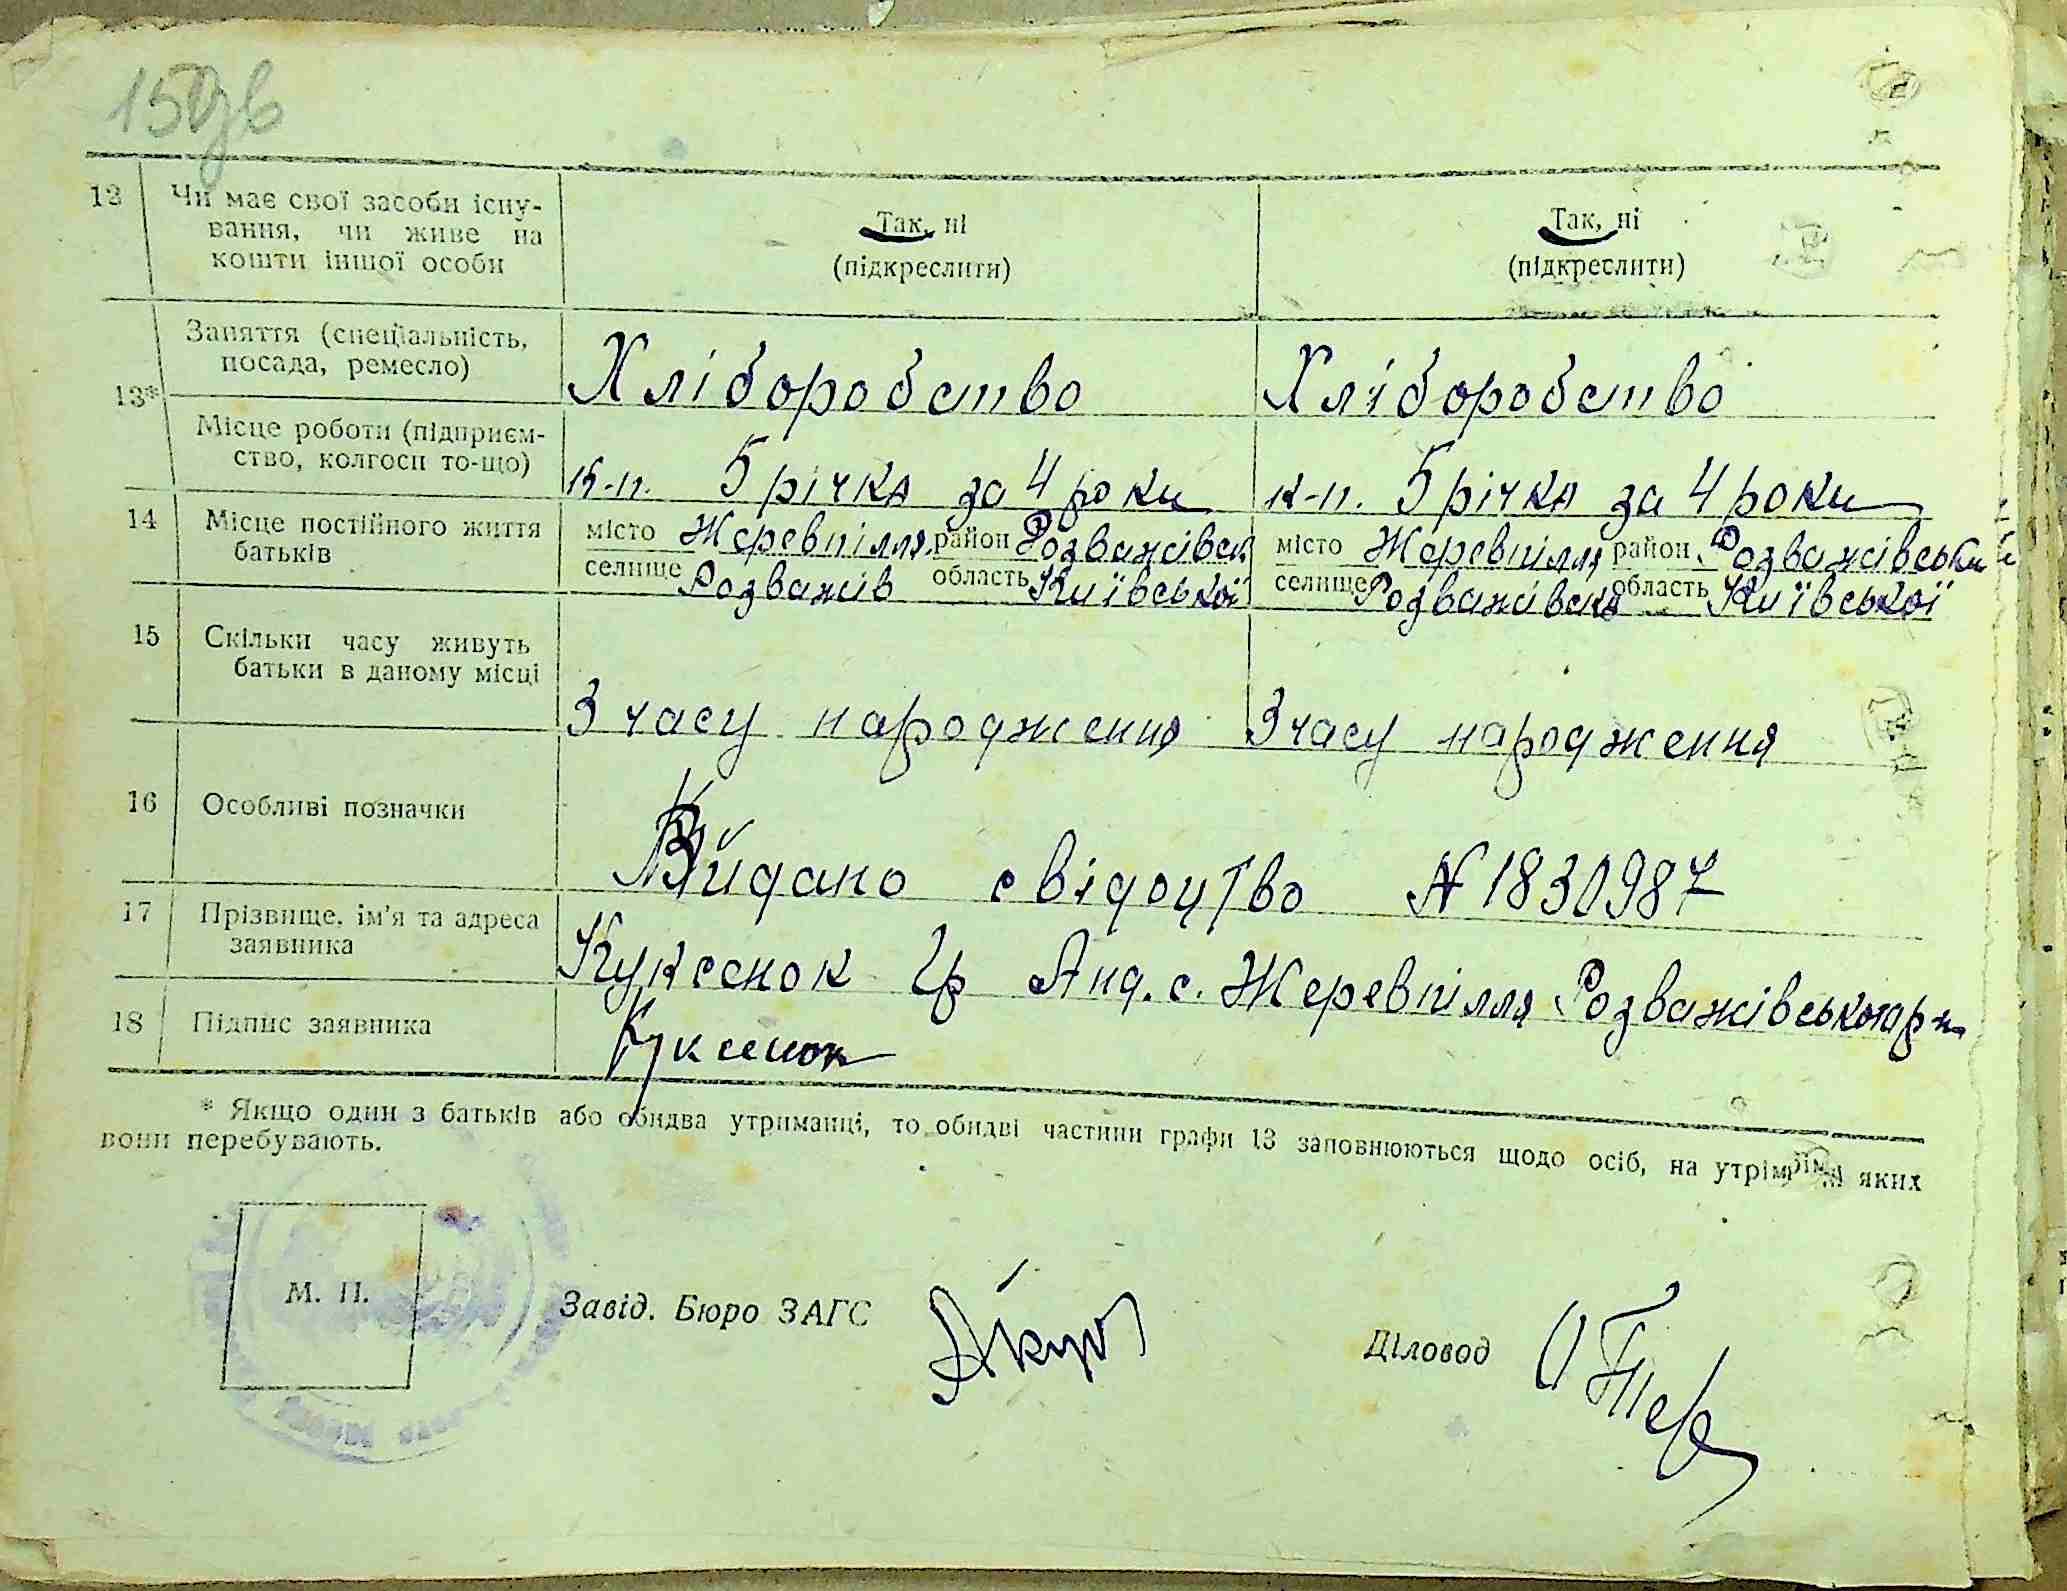 150зв
12 Чи має свої засоби існу-
вання, чи живе на
кошти іншої особи
Так, ні
(підкреслити)
Так, ні
(підкреслити)
13*
Заняття (спеціальність,
посада, ремесло)
Хліборобство
Хліборобство
Місце роботи (підприєм-
ство, колгосп то-що)
к-п. 5 річка за 4 роки
к-п. 5 річка за 4 роки
14 Місце постійного життя
батьків
місто Жеревпілля район Розважівськ
селище Розважів область Київської
місто Жеревпілля район Розважівський
селище Розважівськ область Київської
15 Скільки часу живуть
батьки в даному місці
З часу народження
З часу народження
16 Особливі позначки
Видано свідоцтво N 1830987
17 Прізвище, ім'я та адреса
заявника
Куксенок Гр Анд. с. Жеревпілля Розважівського р-н
18 Підпис заявника
Куксенок
* Якщо один з батьків або обидва утриманці, то обидві частини графи 13 заповнюються щодо осіб, на яких
вони перебувають.
М. П.
Завід. Бюро ЗАГС
Діловод